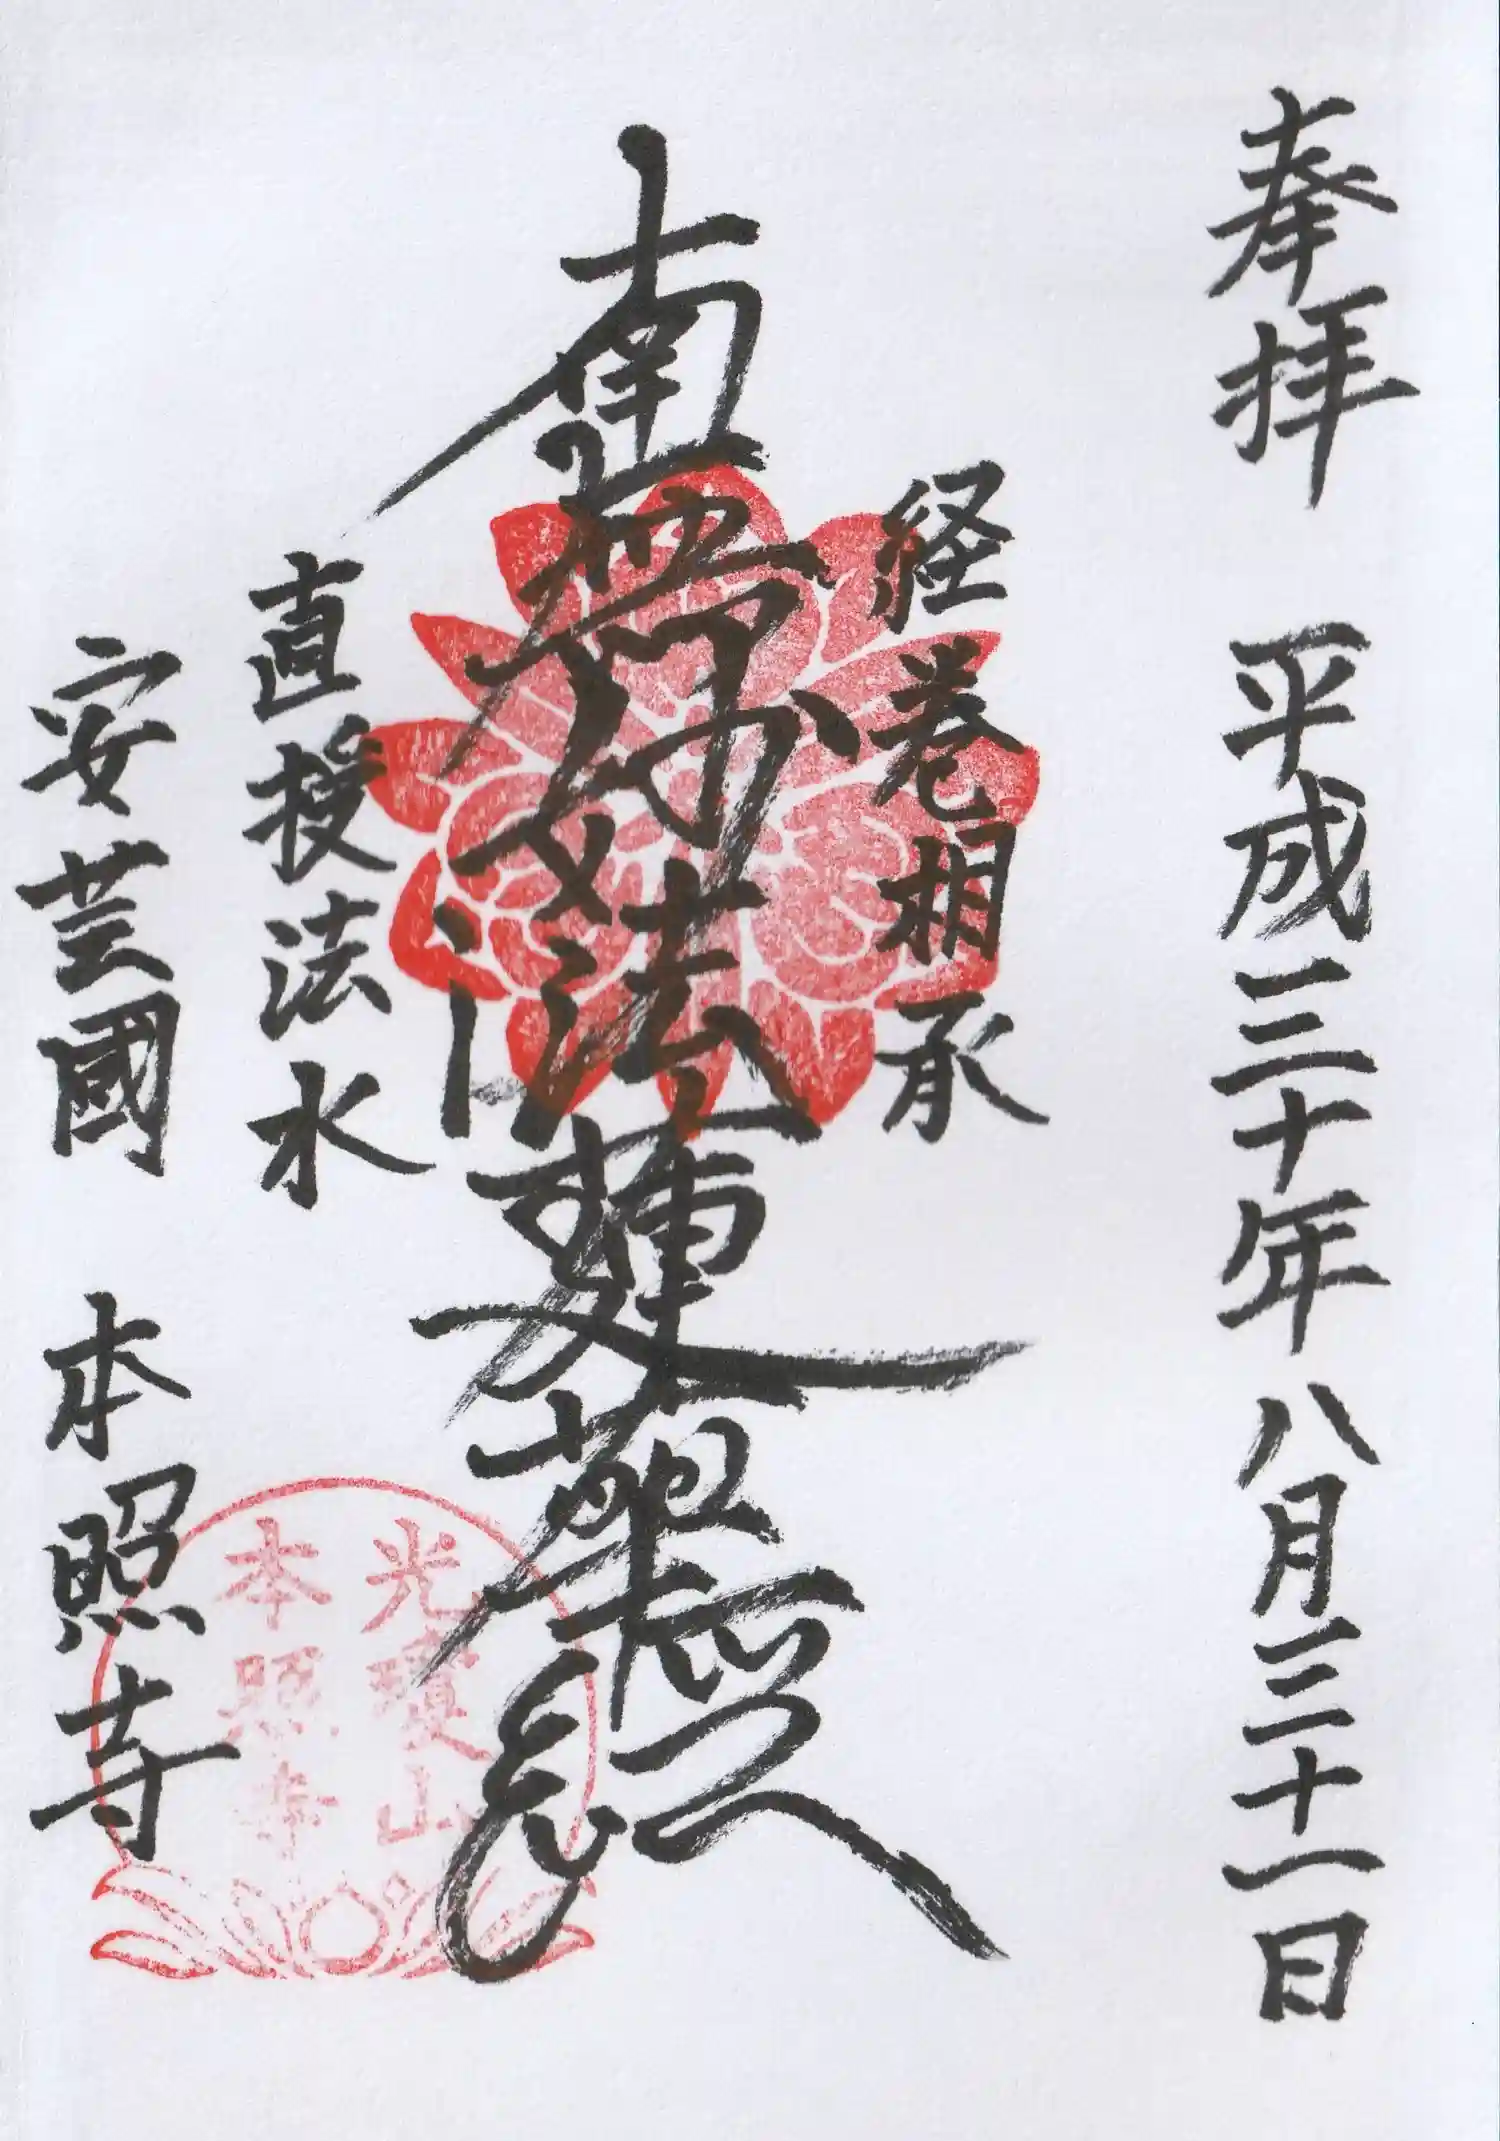 奉拝 平成三十年八月三十一日
経巻相承
南無妙法蓮華経
直授法水
安芸國 本照寺
光瓊山
本照寺